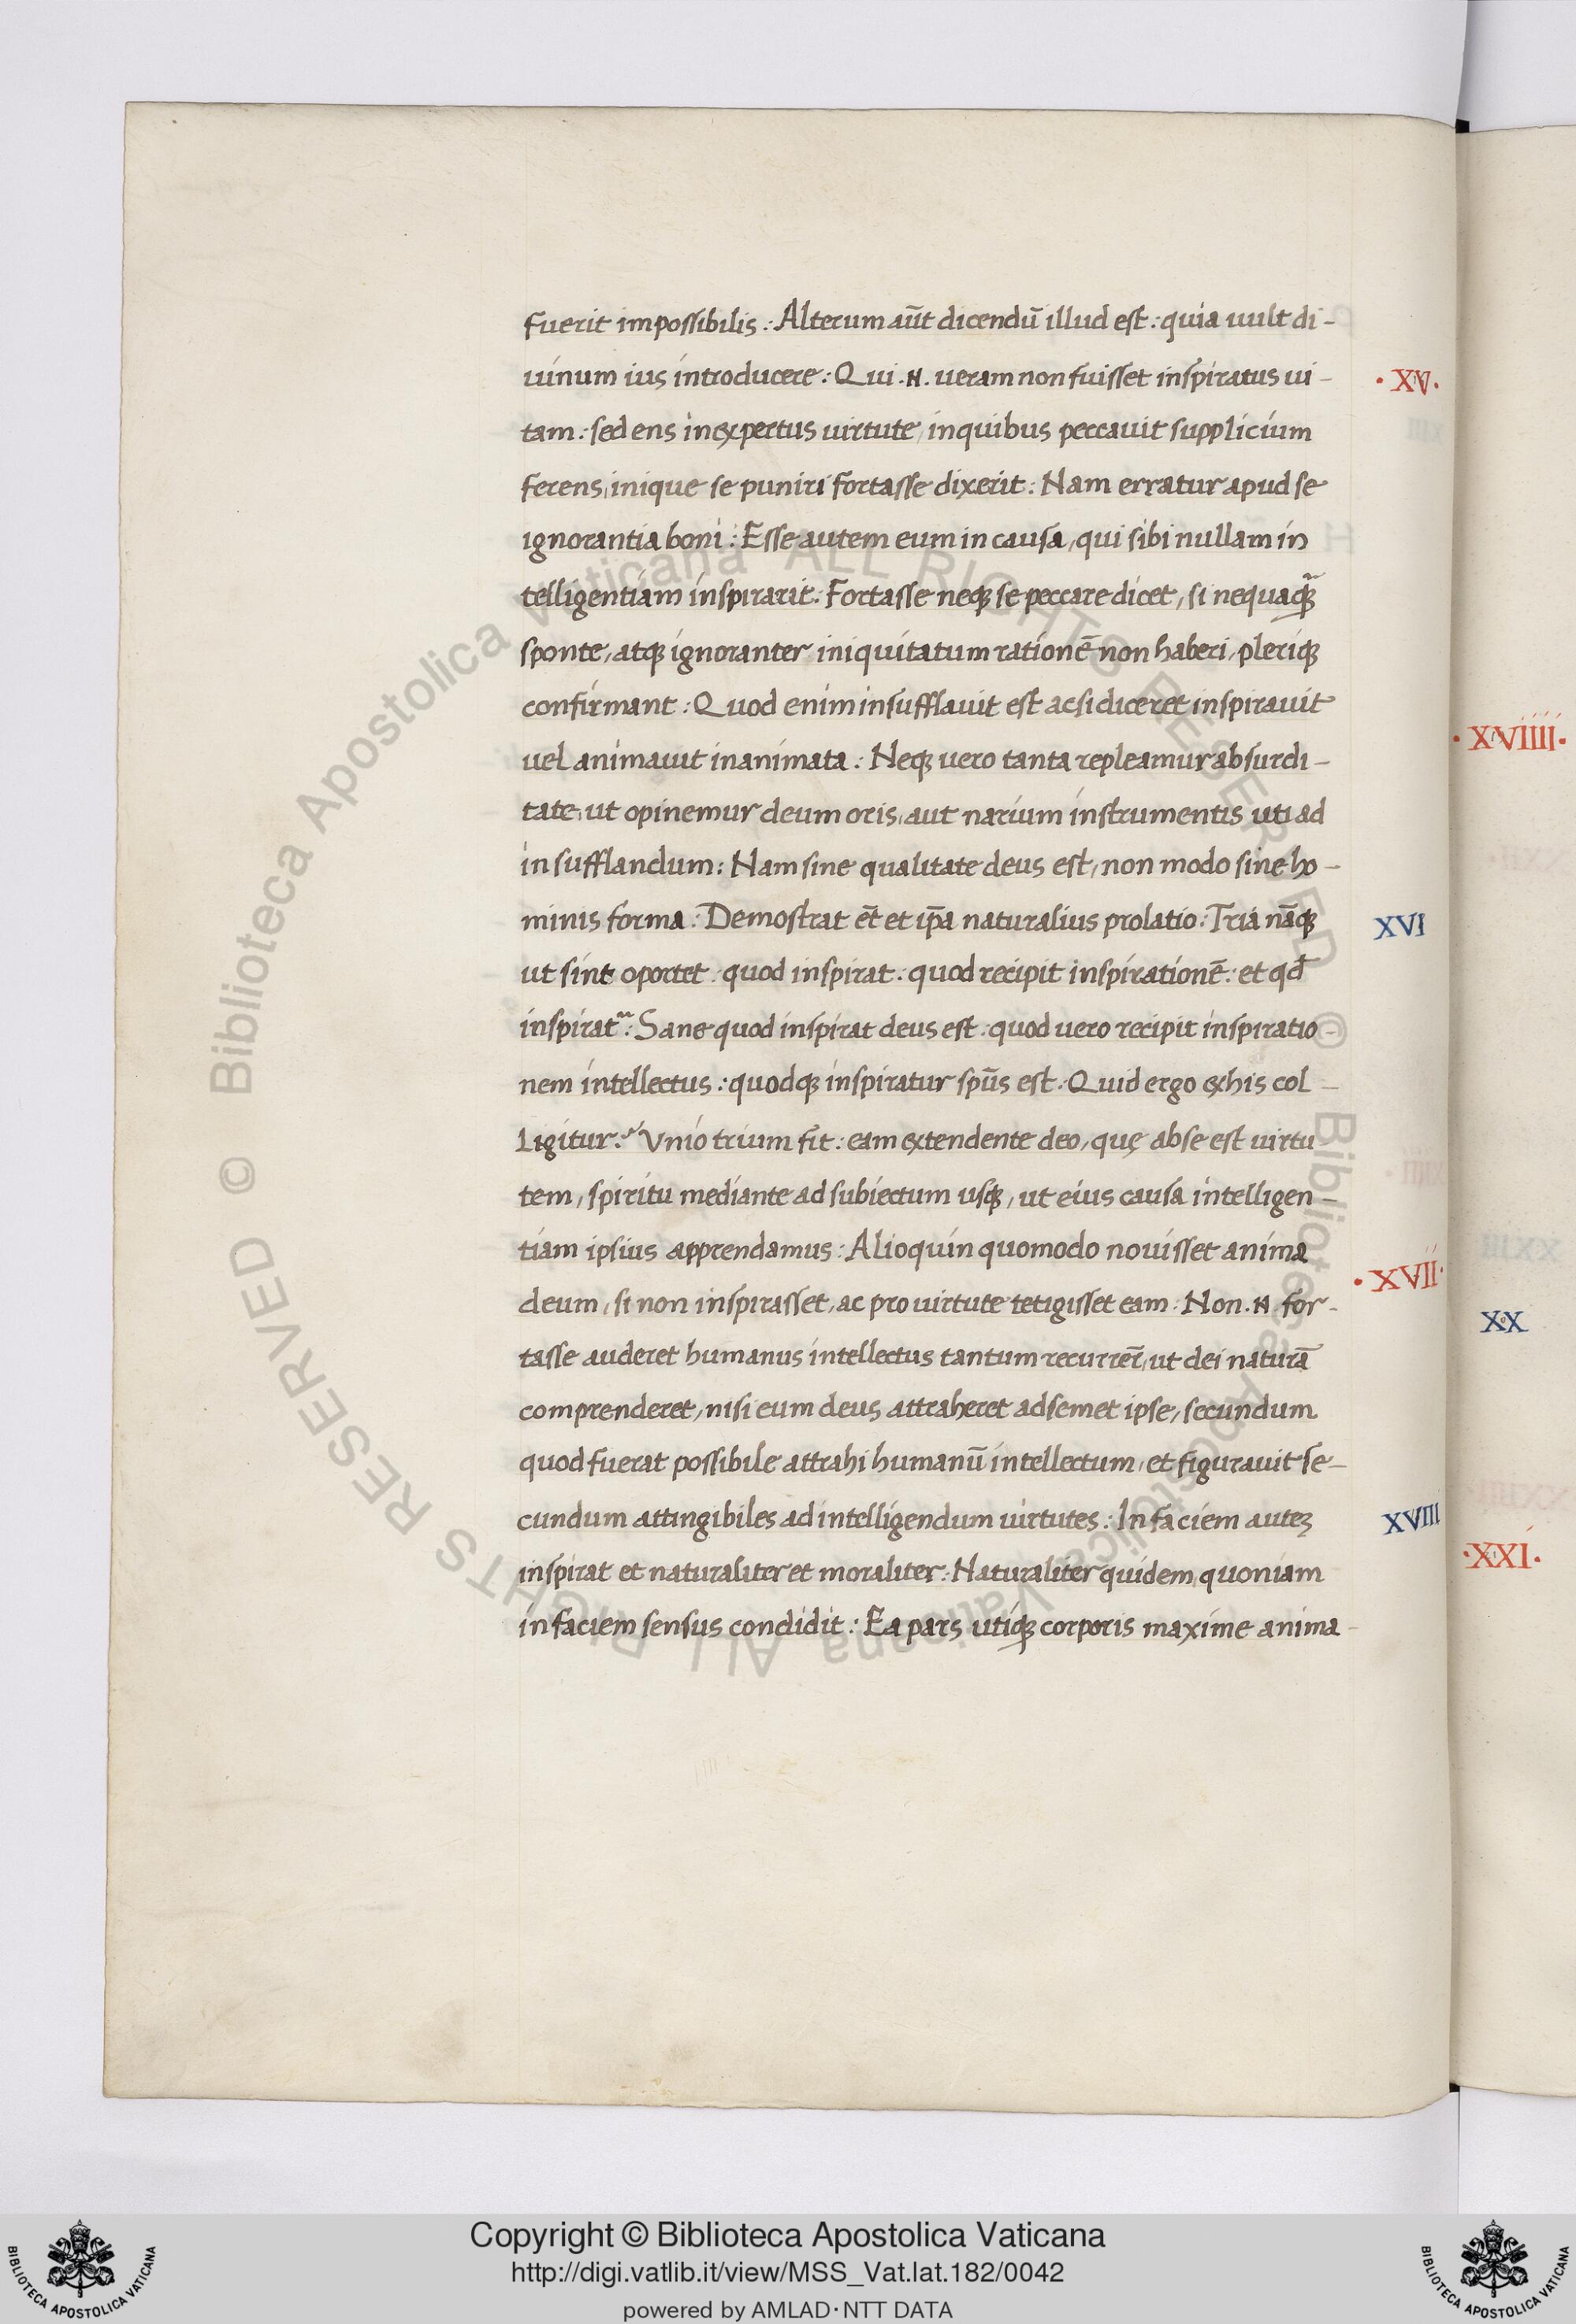 fuerit impossibilis : Alterum aūt dicendū illud est : quia uult di-
uinum ius introducere : Qui .N. ueram non fuisset inspiratus ui- ·XV·
tam : sed ens inexpertus uirtute, in quibus peccauit supplicium
ferens, inique se puniri fortasse dixerit : Nam erratur apud se
ignorantia boni : Esse autem eum in causa, qui sibi nullam in
telligentiam inspirarit : Fortasse neq; se peccare dicet, si nequaq̄;
sponte, atq; ignoranter iniquitatum rationē non haberi, pleriq;
confirmant : Quod enim insufflauit est ac si diceret inspirauit
uel animauit inanimata : Neq; uero tanta repleamur absurdi-
tate, ut opinemur deum oris, aut narium instrumentis uti ad
insufflandum : Nam sine qualitate deus est, non modo sine ho-
minis forma : Demostrat et̄ et ip̄a naturalius prolatio : Tria nāq; XVI
ut sint oportet : quod inspirat : quod recipit inspirationē : et qd̄
inspirat᷑ : Sane quod inspirat deus est : quod uero recipit inspiratio-
nem intellectus : quodq; inspiratur sp̄us est : Quid ergo ex his col-
ligitur? Vnio trium fit : eam extendente deo, quę ab se est uirtu
tem, spiritu mediante ad subiectum usq;, ut eius causa intelligen-
tiam ipsius apprendamus : Alioquin quomodo nouisset anima
deum, si non inspirasset, ac pro uirtute tetigisset eam : Non .N. for- ·XVII·
tasse auderet humanus intellectus tantum recurrer̄, ut dei naturā
comprenderet, nisi eum deus attraheret ad semet ipse, secundum
quod fuerat possibile attrahi humanū intellectum, et figurauit se-
cundum attingibiles ad intelligendum uirtutes : In faciem autez XVIII
inspirat et naturaliter et moraliter : Naturaliter quidem, quoniam
in faciem sensus condidit : Ea pars utiq; corporis maxime anima-
·XVIIII·
XX
·XXI·
© Biblioteca Apostolica Vaticana ALL RIGHTS RESERVED © Biblioteca Apostolica Vaticana ALL RIGHTS RESERVED
Copyright © Biblioteca Apostolica Vaticana
http://digi.vatlib.it/view/MSS_Vat.lat.182/0042
powered by AMLAD·NTT DATA
BIBLIOTECA APOSTOLICA VATICANA
BIBLIOTECA APOSTOLICA VATICANA